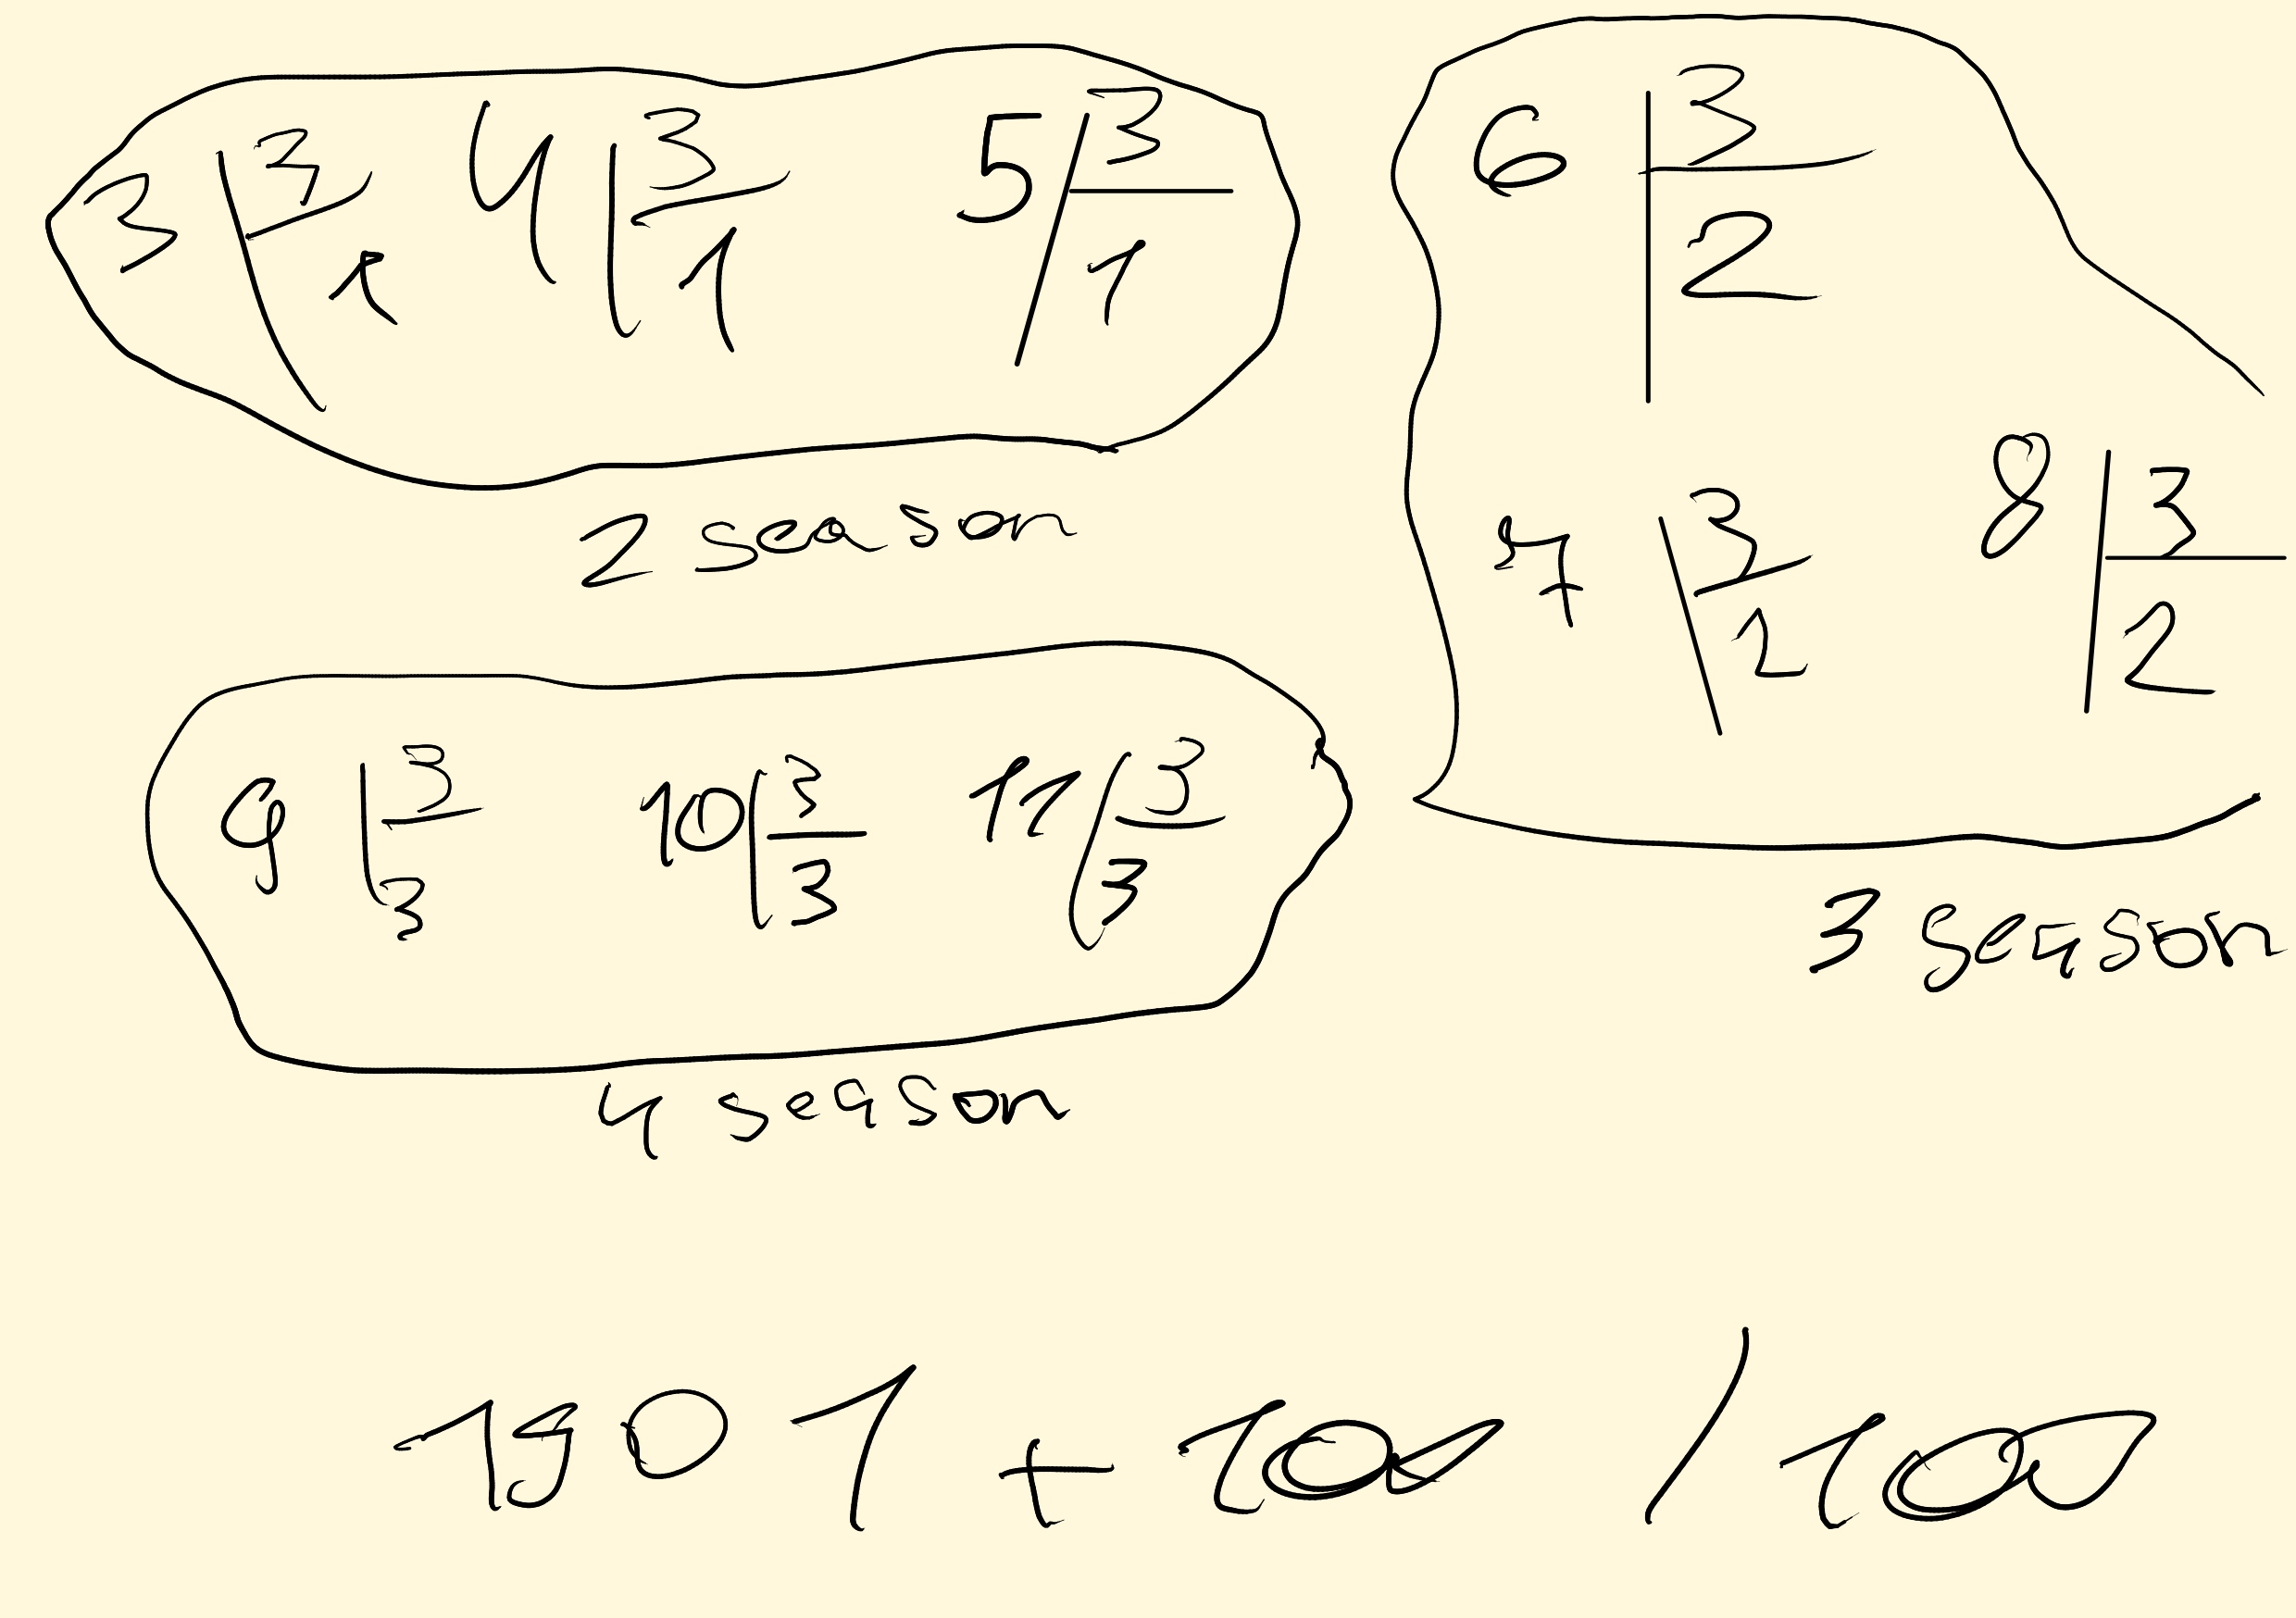 3 | 3 4 | 3 5 | 3
1 1 1
2 season
6 | 3
2
7 | 3 8 | 3
2 2
3 season
9 | 3 10 | 3 11 | 3
3 3 3
4 season
1501 + 100 / 100